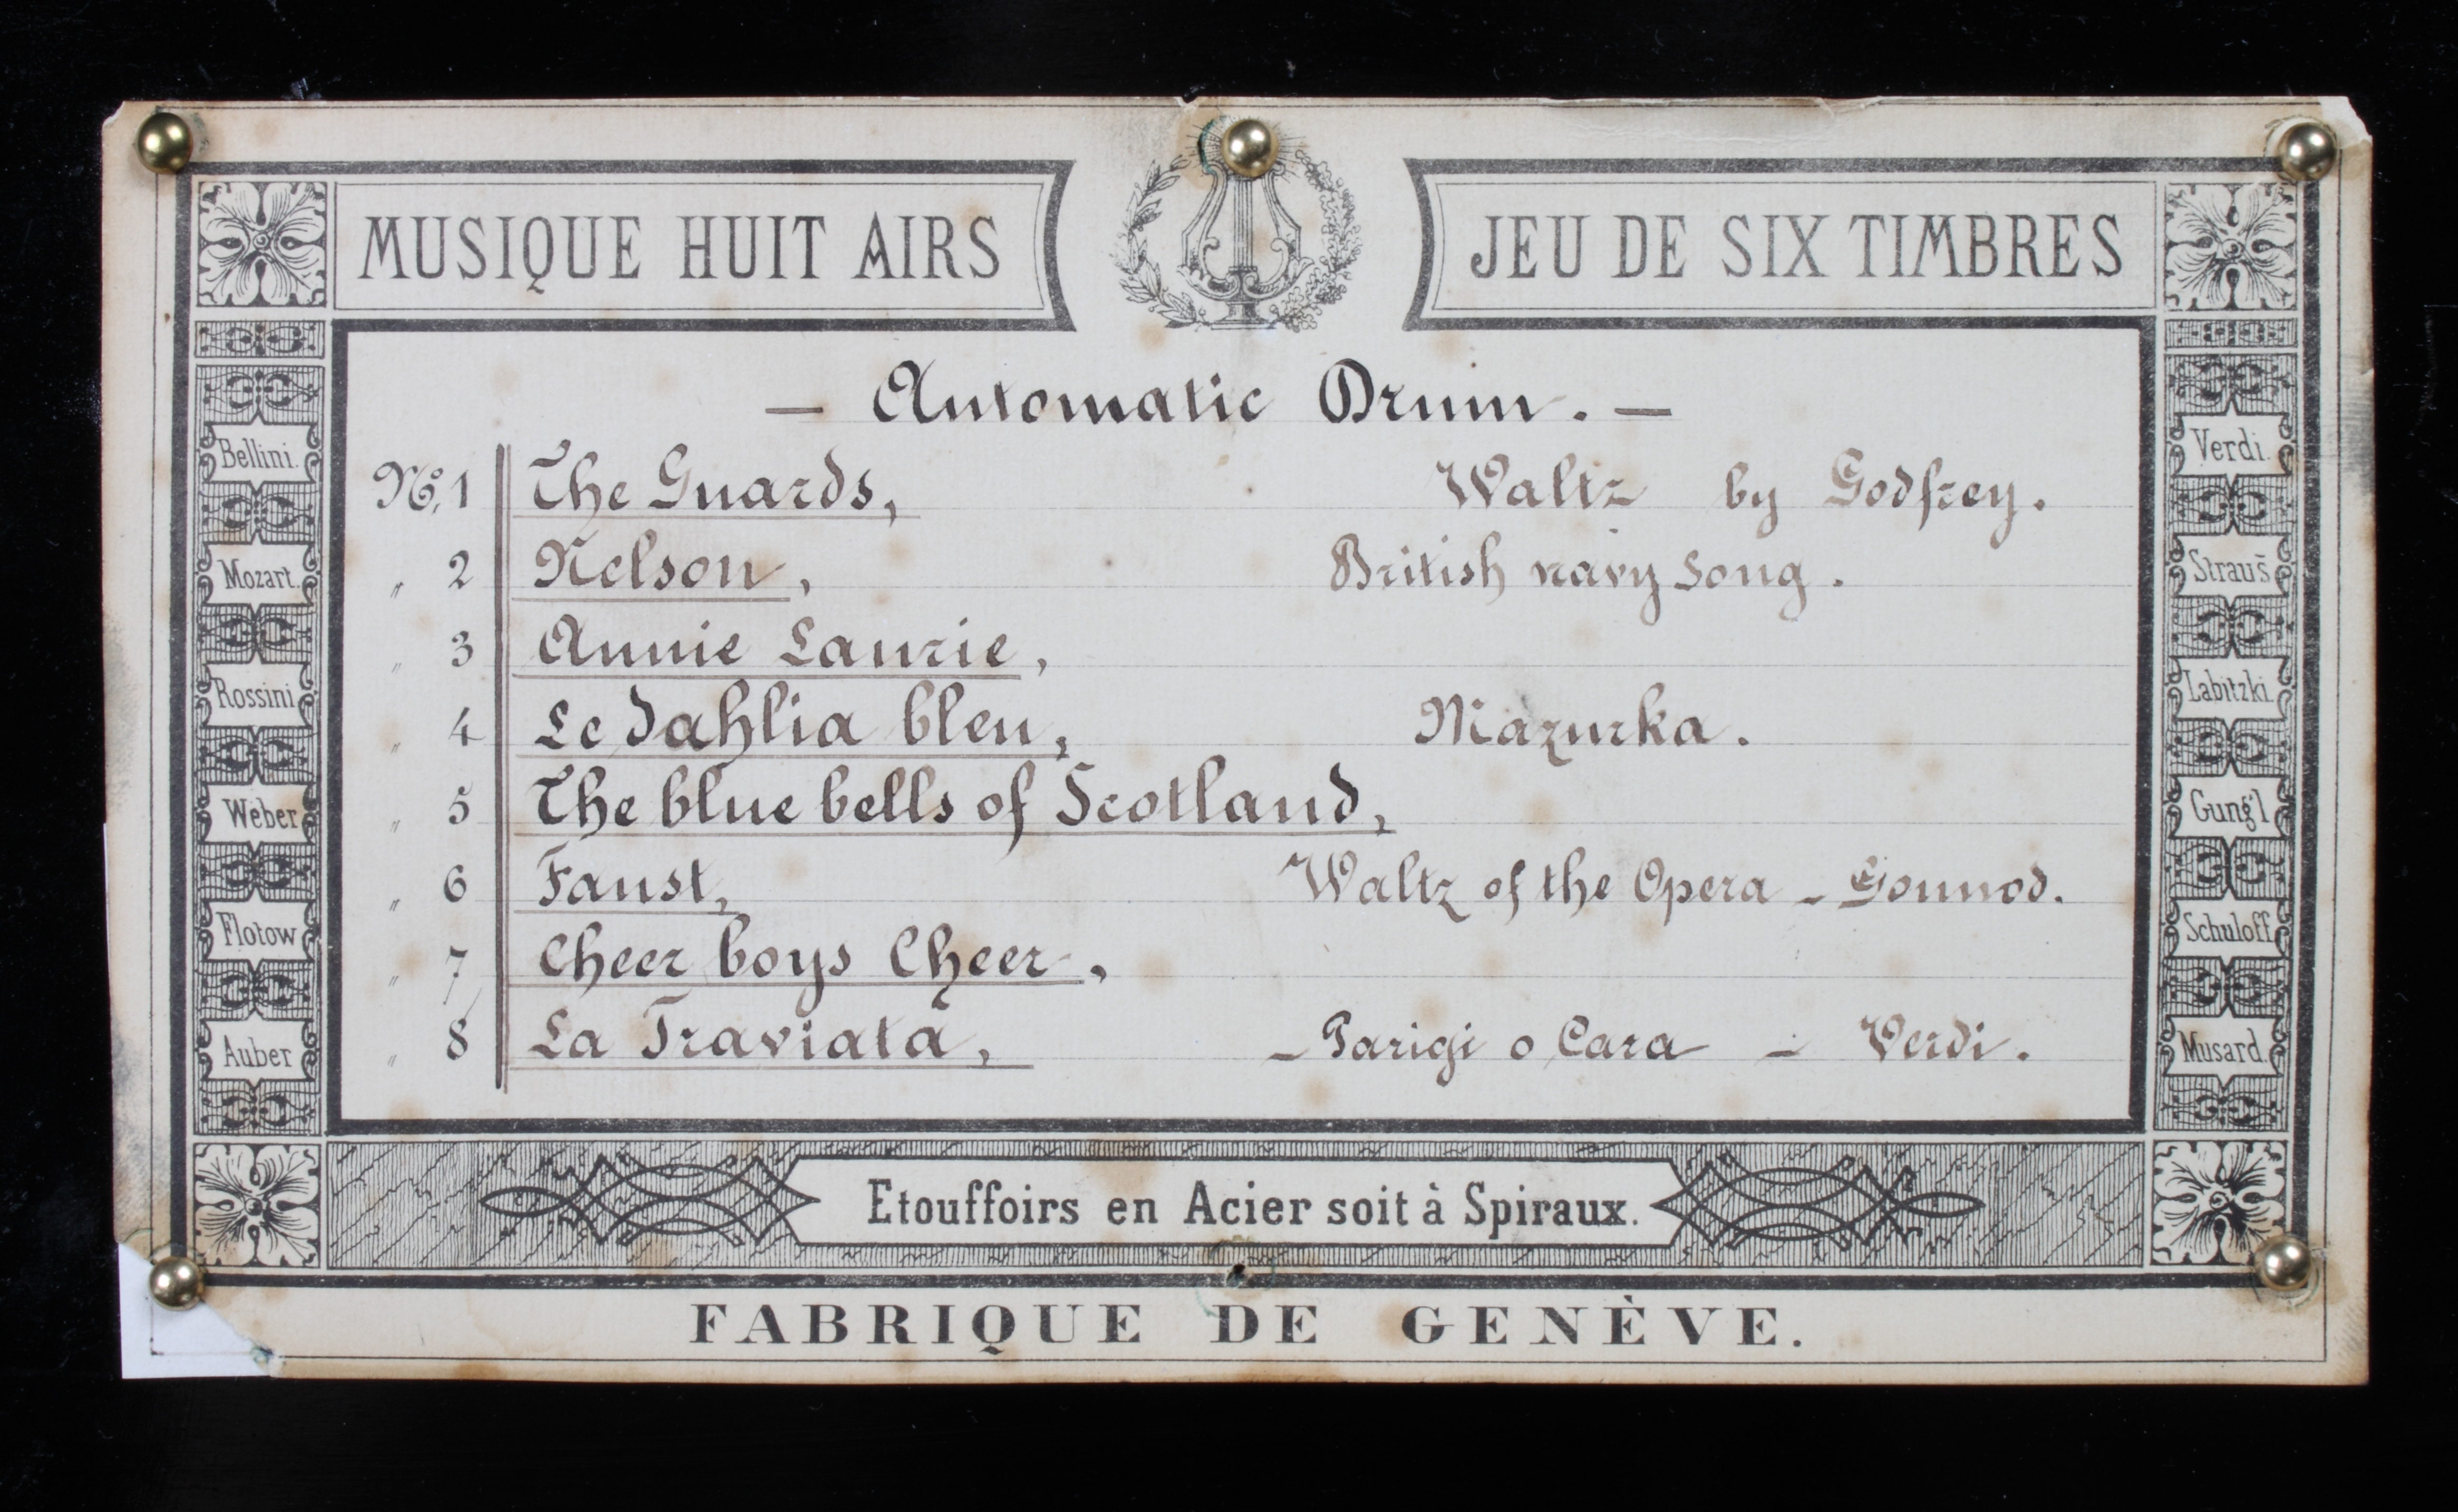 MUSIQUE HUIT AIRS
JEU DE SIX TIMBRES
— Automatic Drum. —
No. 1 The Guards, Waltz by Godfrey.
„ 2 Nelson, British navy song.
„ 3 Annie Laurie,
„ 4 Le dahlia bleu, Mazurka.
„ 5 The blue bells of Scotland,
„ 6 Faust, Waltz of the Opera – Gounod.
„ 7 Cheer boys Cheer,
„ 8 La Traviata, – Parigi o Cara – Verdi.
Bellini.
Mozart.
Rossini
Weber
Flotow
Auber
Verdi.
Strauś
Labitzki.
Gung'l
Schuloff.
Musard.
Etouffoirs en Acier soit à Spiraux.
FABRIQUE DE GENÈVE.